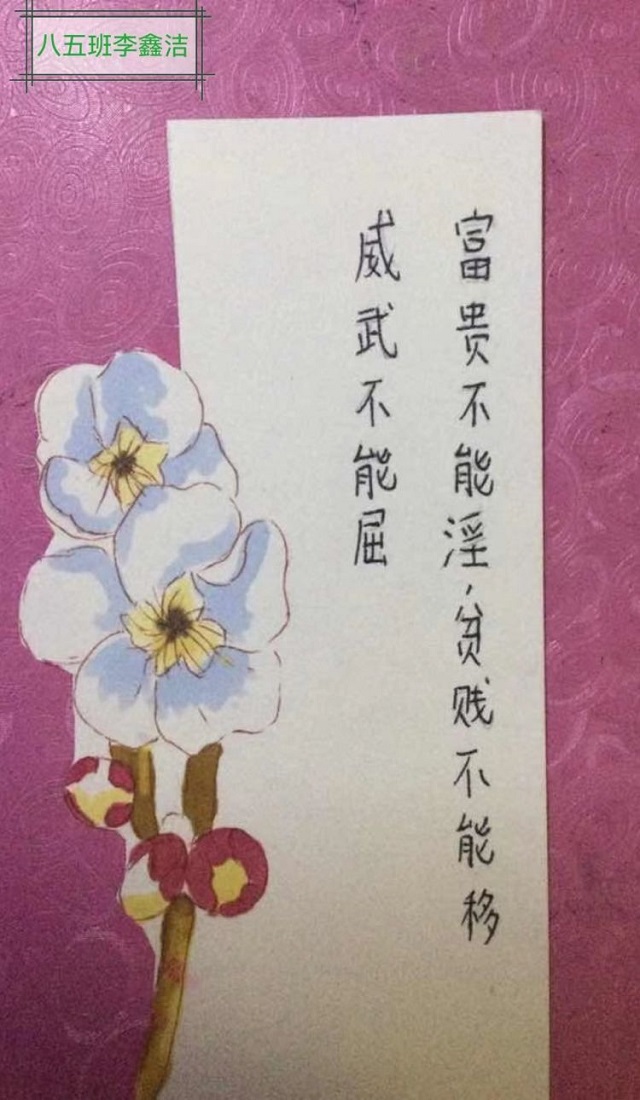 八五班李鑫洁
富贵不能淫，贫贱不能移
威武不能屈